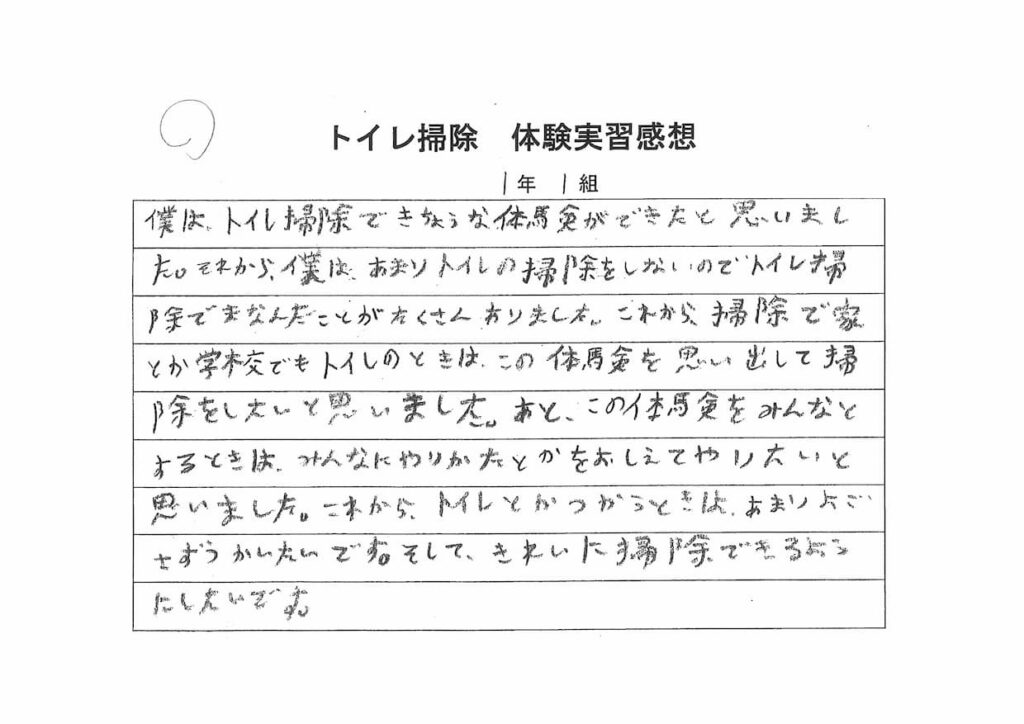 トイレ掃除 体験実習感想
1年 1組
僕は、トイレ掃除できちょうな体験ができたと思いまし
た。それから、僕は、あまりトイレの掃除をしないのでトイレ掃
除でまなんだことがたくさんありました。これから、掃除で家
とか学校でもトイレのときは、この体験を思い出して掃
除をしたいと思いました。あと、この体験をみんなと
するときは、みんなにやりかたとかをおしえてやりたいと
思いました。これから、トイレとかつかうときは、あまりよご
さずつかいたいです。そして、きれいに掃除できるよう
にしたいです。